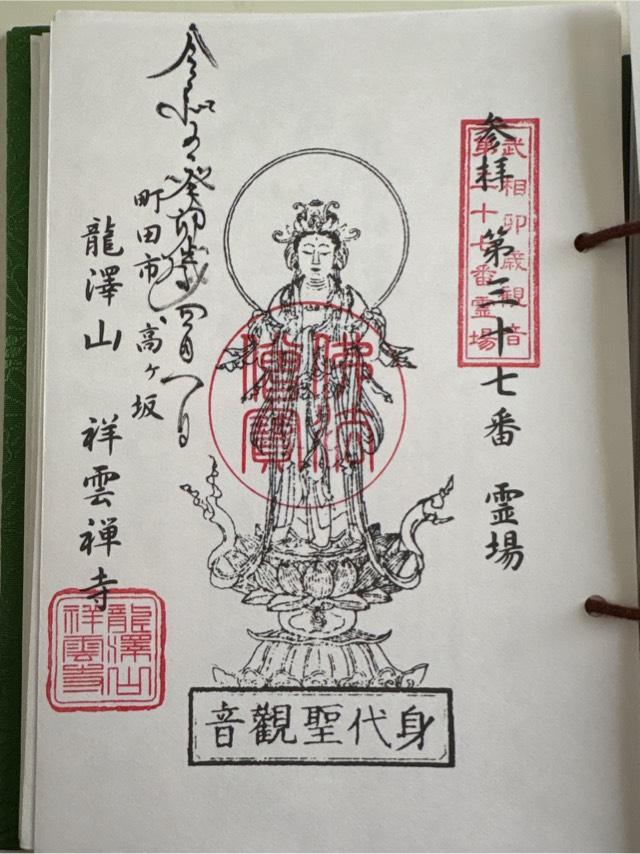 武相卯歳観音
第三十七番霊場
参拝 第三十七番 霊場
佛法
僧寶
身代聖觀音
令和五 癸卯歳 四月一日
町田市、高ヶ坂
龍澤山 祥雲禅寺
龍澤山
祥雲寺